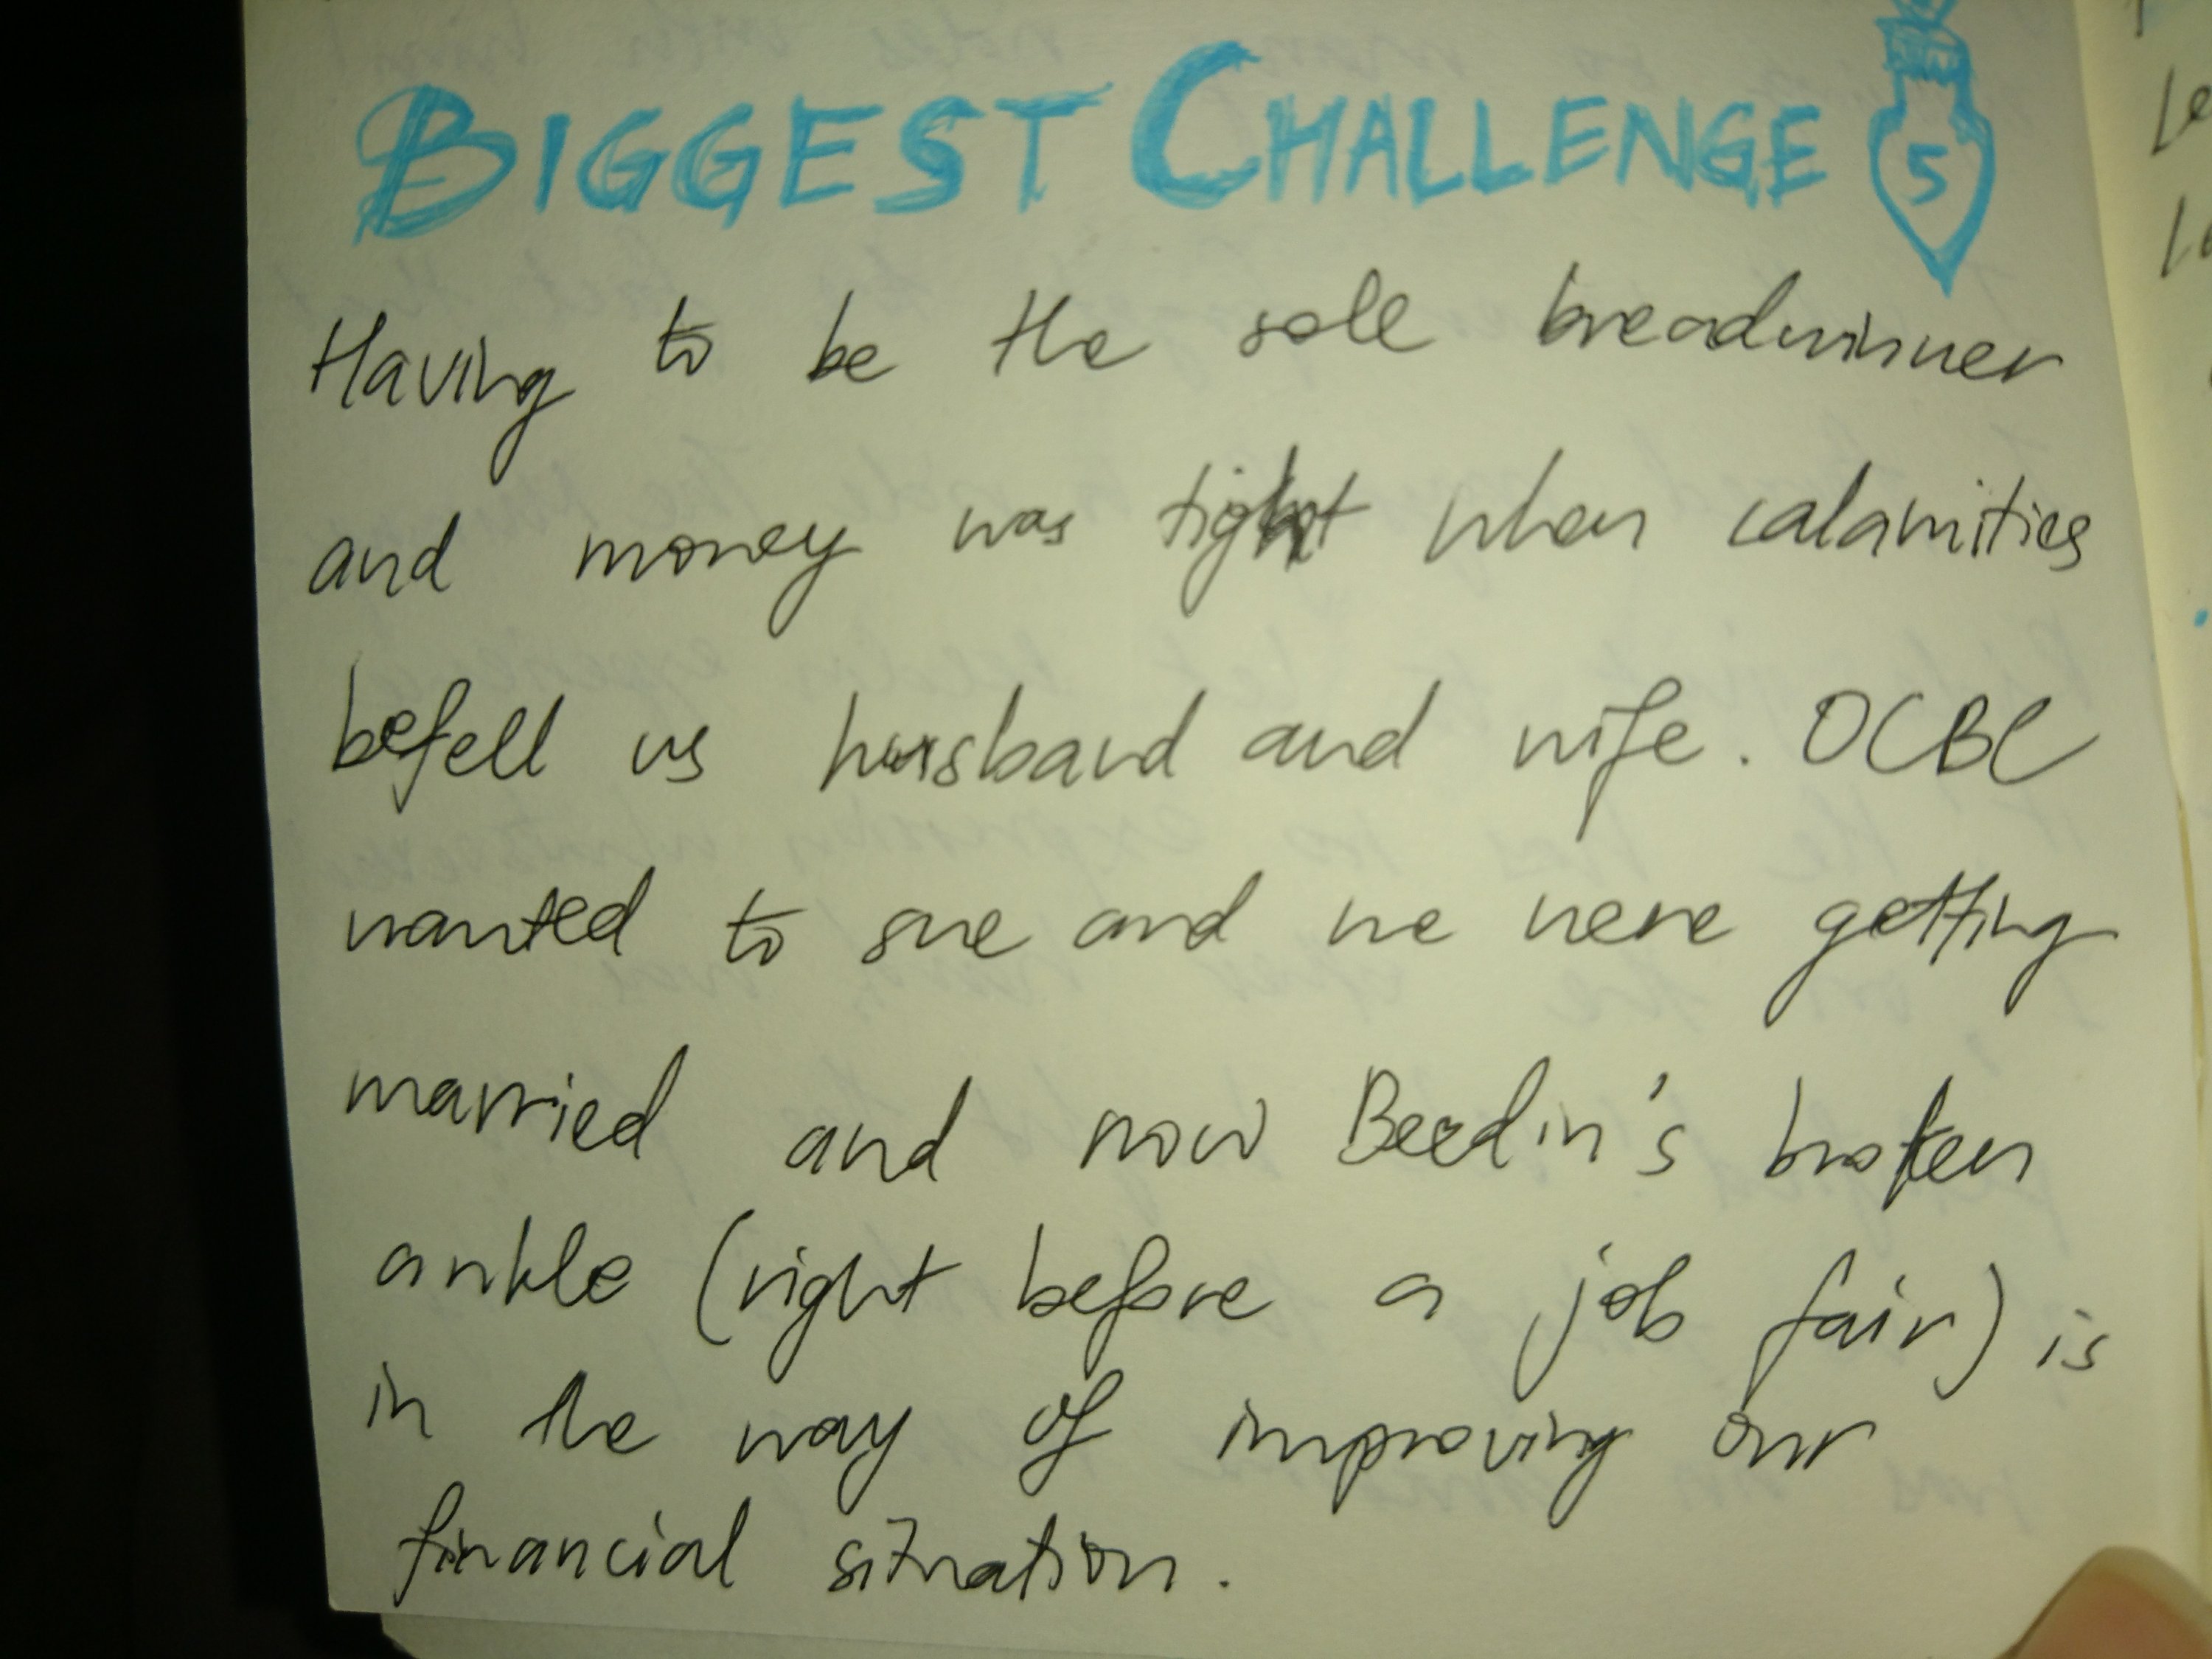 BIGGEST CHALLENGE 5
Having to be the sole breadwinner
and money was tight when calamities
befell us husband and wife. OCBC
wanted to sue and we were getting
married and now Beedin's broken
ankle (right before a job fair) is
in the way of improving our
financial situation.